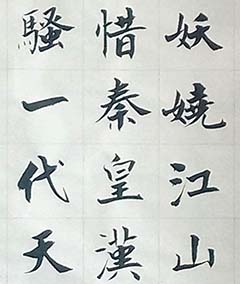 妖嬈江山
惜秦皇漢
騷一代天